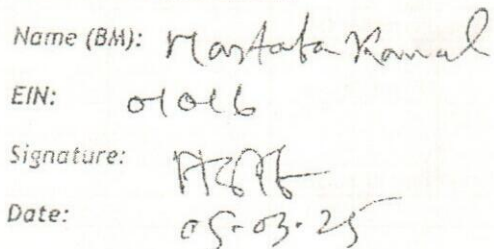 Name (BM): Mostafa Kamal
EIN: 01016
Signature:
Date: 05-03-25